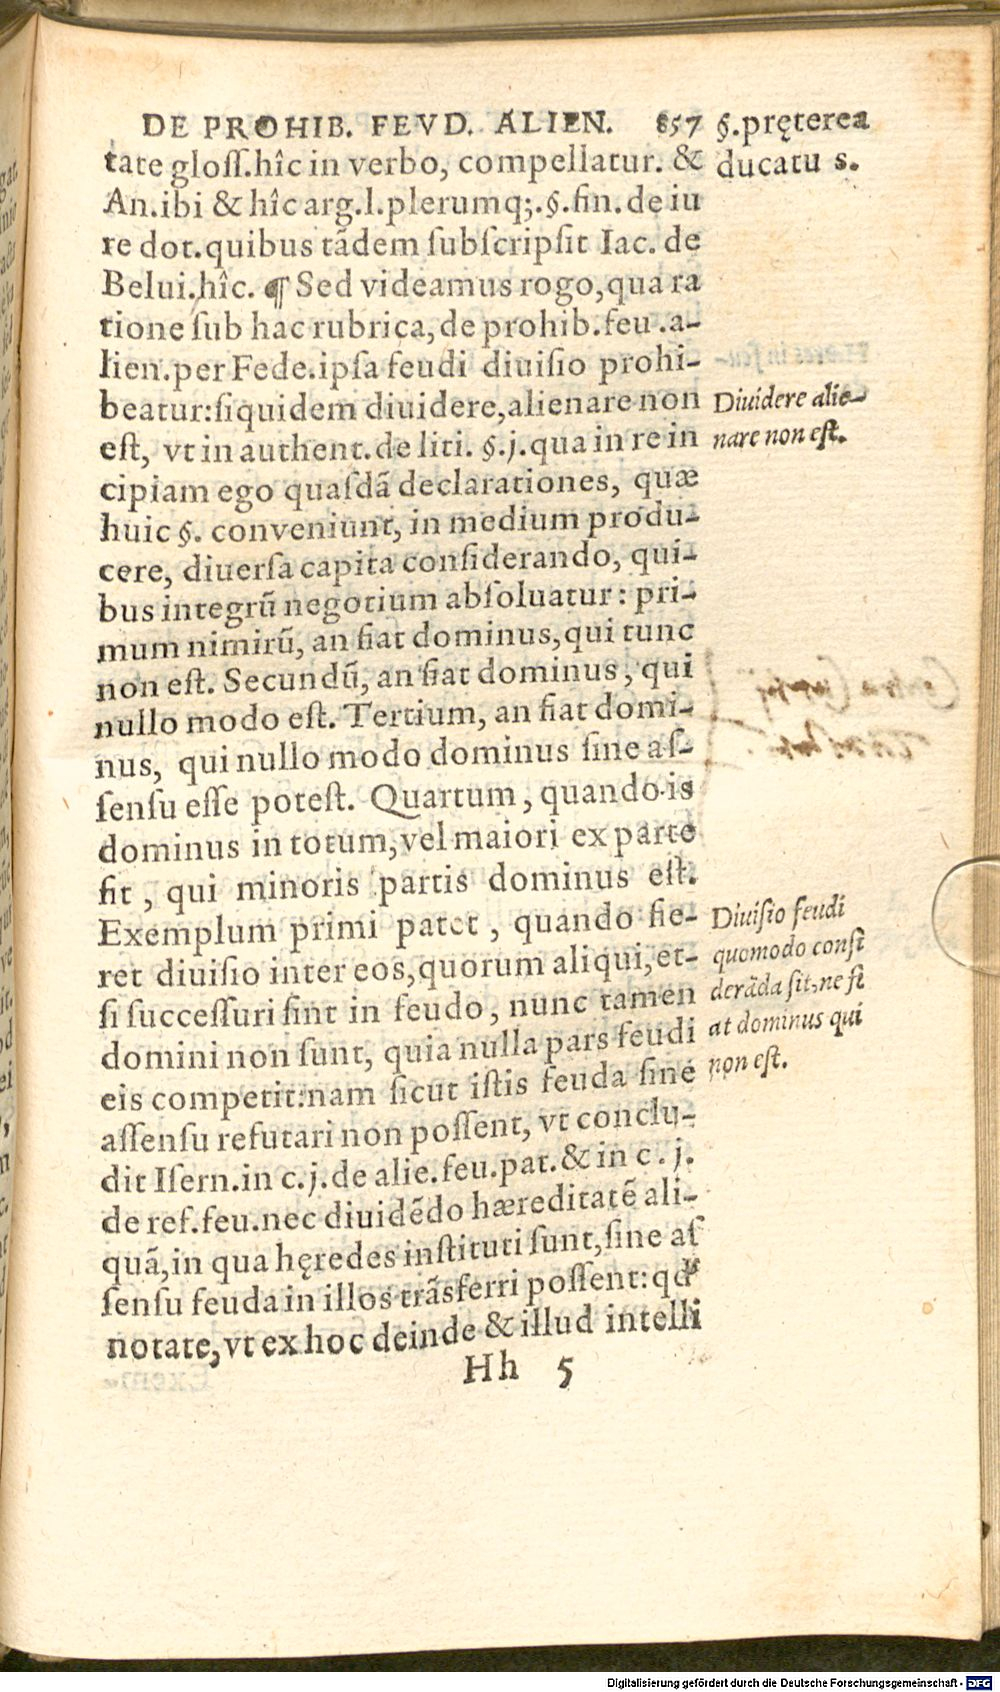 DE PROHIB. FEVD. ALIEN. 857 §.pręterea
ducatu s.
tate gloſſ.hîc in verbo, compellatur. &
An.ibi & hîc arg.l.plerumq;.§.fin.de iu
re dot.quibus tādem ſubſcripſit Iac. de
Belui.hîc. ¶ Sed videamus rogo,qua ra
tione ſub hac rubrica,de prohib.feu.a-
lien.per Fede.ipſa feudi diuiſio prohi-
beatur:ſiquidem diuidere,alienare non
eſt, vt in authent.de liti. §.j.qua in re in
cipiam ego quaſdā declarationes, quæ
huic §. conveniunt, in medium produ-
cere, diuerſa capita conſiderando, qui-
bus integrū negotium abſoluatur: pri-
mum nimirū, an fiat dominus,qui tunc
non eſt. Secundū, an fiat dominus, qui
nullo modo eſt. Tertium, an fiat domi-
nus, qui nullo modo dominus ſine aſ-
ſenſu eſſe poteſt. Quartum, quando is
dominus in totum,vel maiori ex parte
fit, qui minoris partis dominus eſt.
Exemplum primi patet, quando fie-
ret diuiſio inter eos,quorum aliqui,et-
ſi ſucceſſuri ſint in feudo, nunc tamen
domini non ſunt, quia nulla pars feudi
eis competit:nam ſicut iſtis feuda ſine
aſſenſu refutari non poſſent, vt conclu-
dit Iſern.in c.j.de alie.feu.pat.& in c.j.
de ref.feu.nec diuidēdo hæreditatē ali-
quā,in qua hęredes inſtituti ſunt,ſine aſ
ſenſu feuda in illos trāsferri poſſent:qđ
notate,vt ex hoc deinde & illud intelli
Hh 5
Diuidere alie-
nare non eſt.
Diuiſio feudi
quomodo conſi
derāda ſit,ne fi
at dominus qui
non eſt.
Digitalisierung gefördert durch die Deutsche Forschungsgemeinschaft - DFG